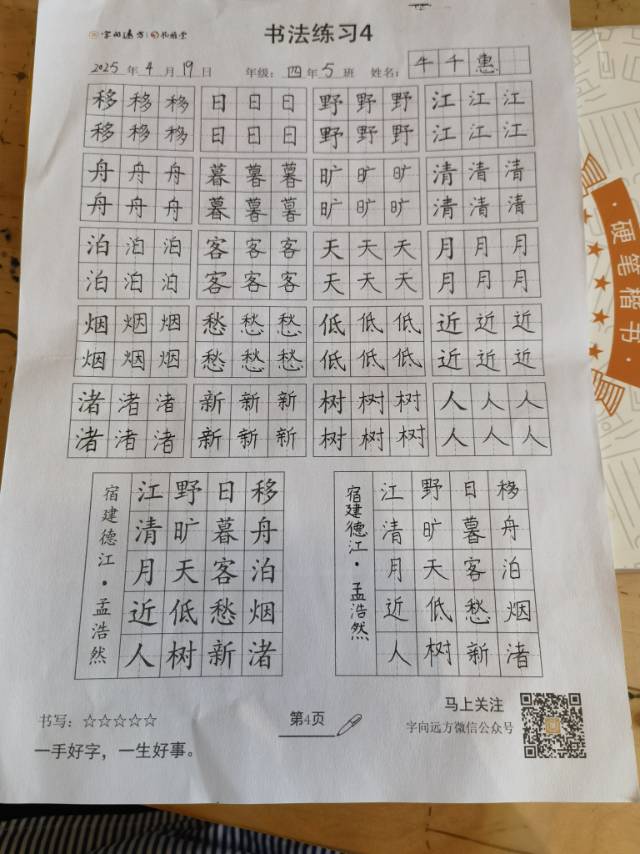 字向远方
书法练习4
2025年4月19日 年级：四年5班 姓名：牛千惠
移移移 日日日 野野野 江江江
移移移 日日日 野野野 江江江
舟舟舟 暮暮暮 旷旷旷 清清清
舟舟舟 暮暮暮 旷旷旷 清清清
泊泊泊 客客客 天天天 月月月
泊泊泊 客客客 天天天 月月月
烟烟烟 愁愁愁 低低低 近近近
烟烟烟 愁愁愁 低低低 近近近
渚渚渚 新新新 树树树 人人人
渚渚渚 新新新 树树树 人人人
移舟泊烟渚
日暮客愁新
野旷天低树
江清月近人
宿建德江·孟浩然
移舟泊烟渚
日暮客愁新
野旷天低树
江清月近人
宿建德江·孟浩然
书写：☆☆☆☆☆
一手好字，一生好事。
第4页
马上关注
字向远方微信公众号
·硬笔楷书·